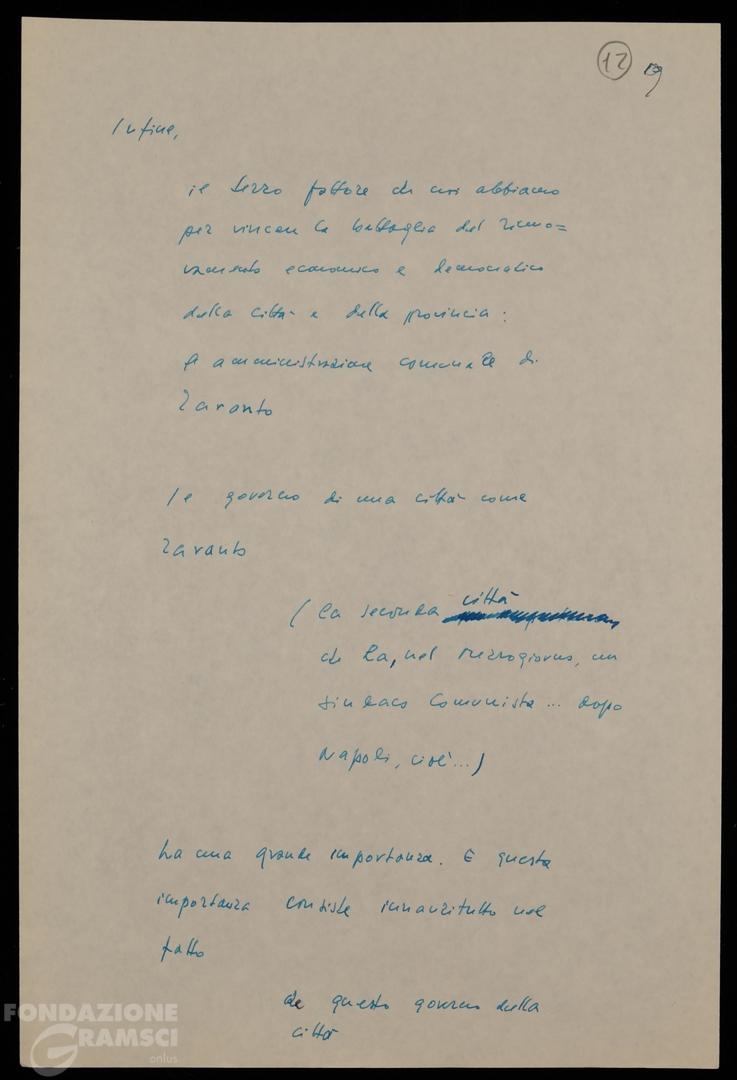 12 19
Infine,
il terzo fattore che noi abbiamo
per vincere la battaglia del rinno=
vamento economico e democratico
della città e della provincia:
l'amministrazione comunale di
Taranto
Il governo di una città come
Taranto
(la seconda città
che ha, nel Mezzogiorno, un
sindaco comunista... dopo
Napoli, cioè...)
ha una grande importanza. E questa
importanza consiste innanzitutto nel
fatto
che questo governo della
città
FONDAZIONE
GRAMSCI
onlus